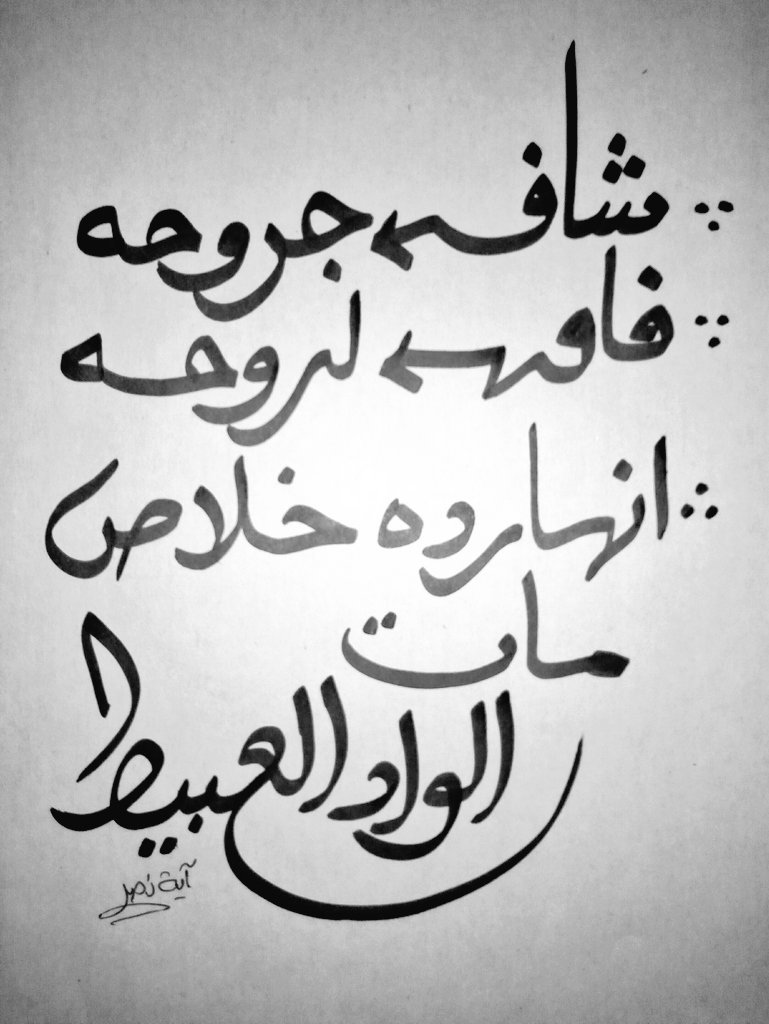 شافے جروحه
فاقے لروحه
انهارده خلاص
مات
الواد العبيط
آية نصر